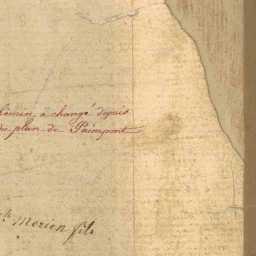 chemin a changé depuis
plan de Paimpont
Morien fils